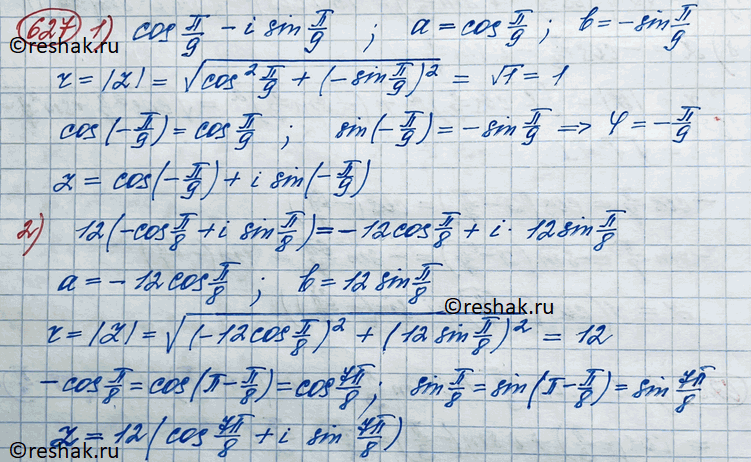 627 1) cos π/9 - i sin π/9 ; a = cos π/9 ; b = - sin π/9
©reshak.ru
r = |z| = √(cos² π/9 + (-sin π/9)²) = √1 = 1
cos(-π/9) = cos π/9 ; sin(-π/9) = -sin π/9 => φ = -π/9
z = cos(-π/9) + i sin(-π/9)
2) 12(-cos π/8 + i sin π/8) = -12cos π/8 + i · 12sin π/8
a = -12cos π/8 ; b = 12 sin π/8
©reshak.ru
r = |z| = √((-12cos π/8)² + (12 sin π/8)²) = 12
-cos π/8 = cos(π - π/8) = cos 7π/8 ; sin π/8 = sin(π - π/8) = sin 7π/8
z = 12(cos 7π/8 + i sin 7π/8)
©reshak.ru
©reshak.ru